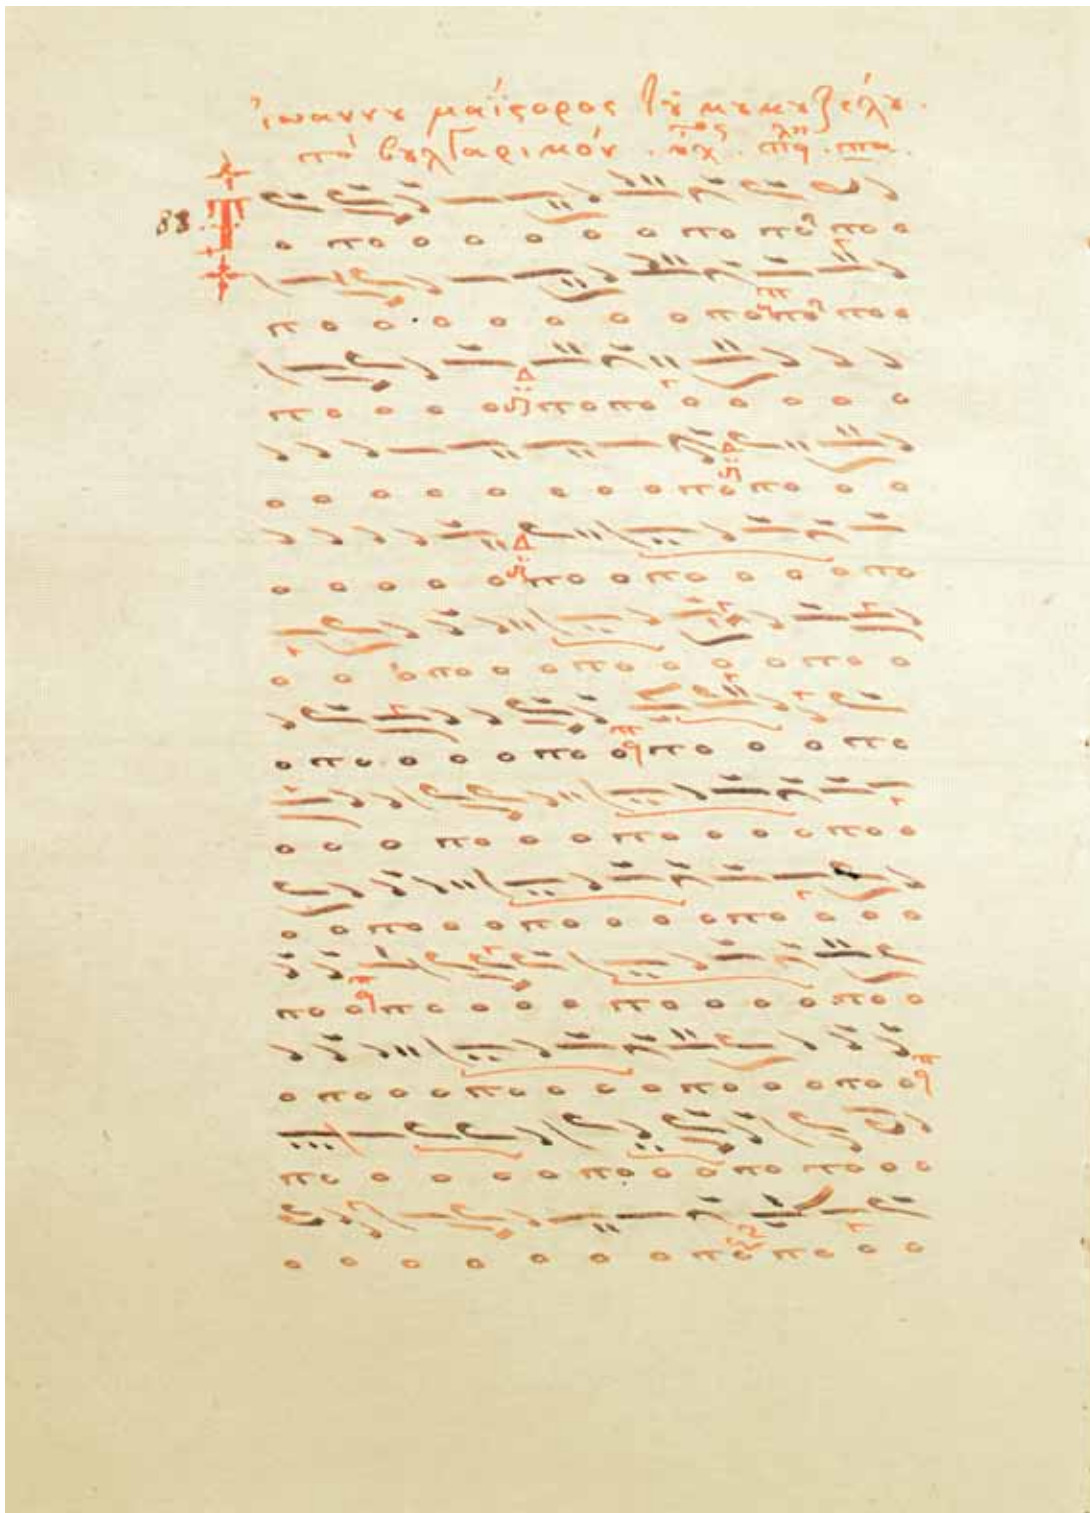 Ἰωάννου μαΐστορος τοῦ κουκουζέλου·
τὸ βουλγαρικόν · ἦχος · πλ α · πα ·
88 · Τ
ο το ο ο ο ο ο το το το ο
το ο ο ο ο ο ο ο το το το ο
το ο ο ο ο το το ο ο ο ο ο
ο ο ο ο ο ο ο ο το το ο ο
ο ο ο ο ο το ο το ο ο ο το
ο ο ο το ο ο το ο ο ο το ο ο
ο το ο ο ο το ο το ο ο το
ο ο ο το ο ο το ο ο ο το ο
ο ο το ο ο το ο ο ο το ο ο ο
το ο το ο ο ο το ο ο ο το ο
ο το ο ο ο το ο ο ο το ο ο το ο
το ο ο ο ο το ο ο ο το το ο ο
ο ο ο ο ο ο ο το το ο ο